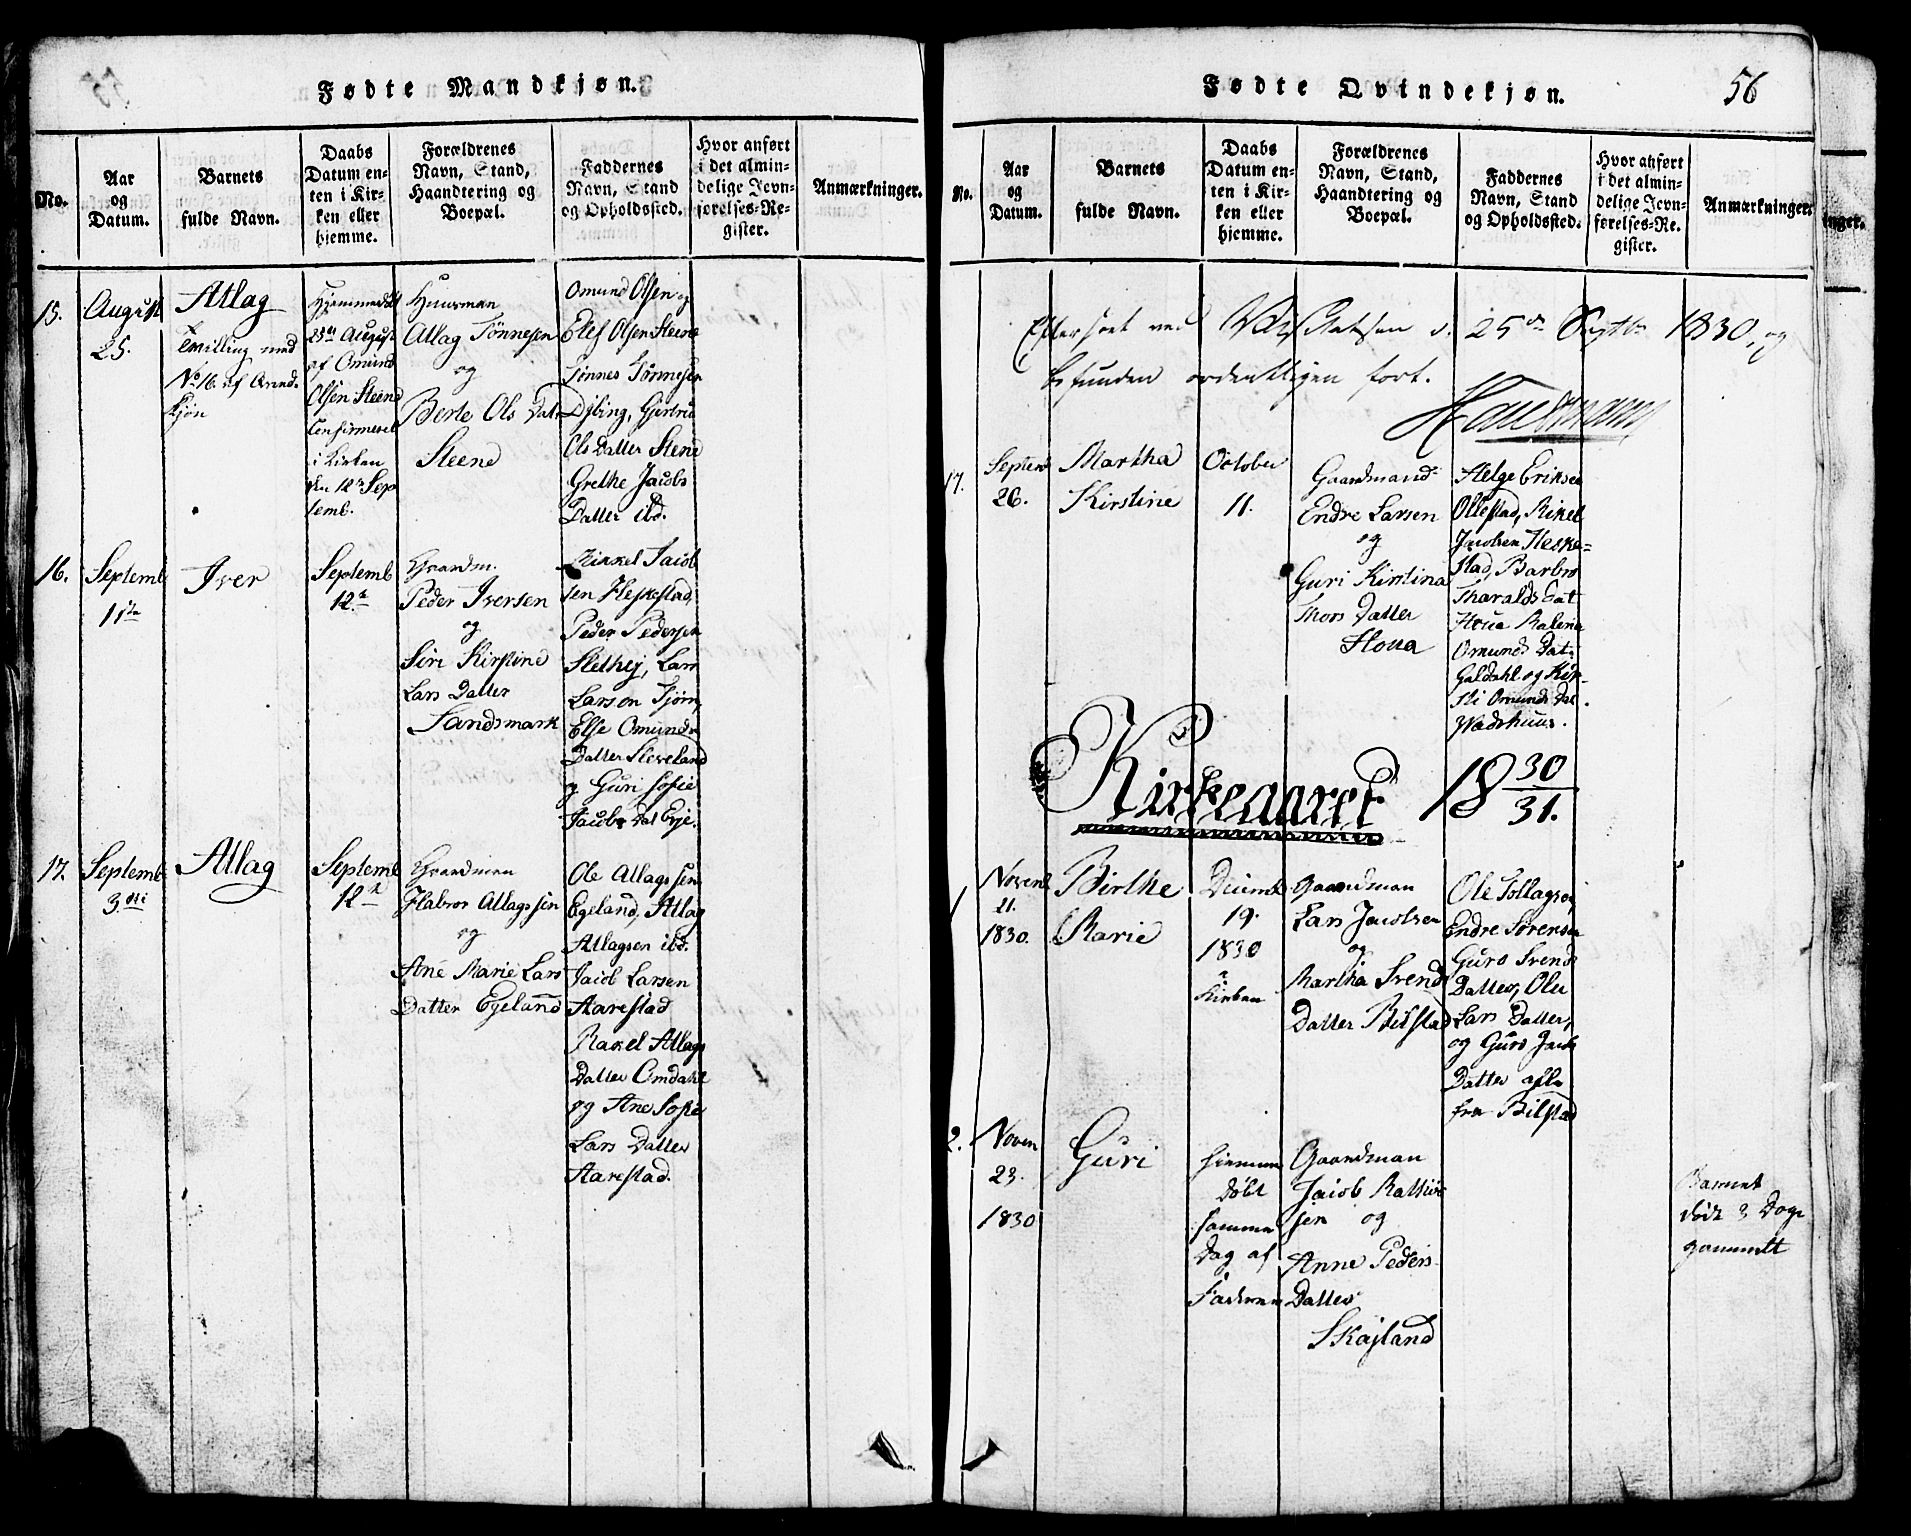 Fødte Mandkjøn.
No.
Aar
og
Datum.
Barnets
fulde Navn.
Daabs
Datum en-
ten i Kir-
ken eller
hjemme.
Forældrenes
Navn, Stand,
Haandtering og
Boepæl.
Faddernes
Navn, Stand
og Opholdssted.
Hvor anført
i det almin-
delige Jevn-
førelses-Re-
gister.
Anmærkninger.
15.
August
25.
Atlag
Tvilling med
No 16 af
Kjøn
Hjemmedöbt
August
af Omund
Olsen Steend
Confirmeret
i Kirken
den 12te Sep
temb.
Huusman
Atlag Tønnesen
og
Berte Ols Dat
Steend
Omund Olsen og
Elef Olsen Steene
Tönnes Tønnesen
Gjertru
Ols Datter Stend
Grethe Jacobs
Datter ibd.
16.
Septemb
1ste
Iver
Septemb
12te
Gaardm.
Peder Iversen
og
Siri Kirstine
Lars Datter
Sandsmark
Mikkel Jacob
sen Heskestad,
Peder Pedersen
Slethej, Lars
Larsen Tjörn,
Else Omunds
Datter Sleveland
og Guri Sofie
Jacobs Dat Eje.
17.
Septemb
3die
Atlag
Septemb
12te
Gaardman
Halvor Atlagssen
og
Ane Marie Lars
Datter Egeland
Ole Atlagssen
Egeland, Atlag
Atlagsen ibd.
Jacob Larsen
Aarestad
Rakel Atlags
Datter Omdahl
og Ane Sofie
Lars Datter
Aarestad.
Fødte Qvindekjøn.
56
No.
Aar
og
Datum.
Barnets
fulde Navn.
Daabs
Datum en-
ten i Kir-
ken eller
hjemme.
Forældrenes
Navn, Stand,
Haandtering og
Boepæl.
Faddernes
Navn, Stand
og Opholdssted.
Hvor anført
i det almin-
delige Jevn-
førelses-Re-
gister.
Anmærkninger.
Efterseet ved d. 25de Septbr 1830, og
befunden ordentligen fört.
17.
Septemb
26.
Martha
Kirstine
October
11.
Gaardmand
Endre Larsen
og
Guri Kirstina
Thors Datter
Houa
Helge Eriksen
Ollestad, Mikel
Jacobsen Heske=
stad, Barbro
Tharalds Dat
Houa Malena
Omunds Dat:
Galdahl og Kir-
sti Omunds Dat.
Wadshuus.
Kirkeaaret 18 30/31.
1
Novemb
21.
1830.
Birthe
Marie
Decemb
19.
1830
i
Kirken
Gaardman
Lars Jacobsen
og
Martha Svends
Datter Bilstad
Ole Tollagsen,
Endre Sörensen
Guro Svends
Datter, Olea
Lars Datter,
og Guro Jacobs
Datter alle
fra Bilstad
2.
Novem
23.
1830
Guri
Hiemme
döbt
samme
Dag af
Faderen
Gaardman
Jacob Mathis
sen og
Anne Peders
Datter
Skojland
Barnet
döde 3 Dage
gammelt